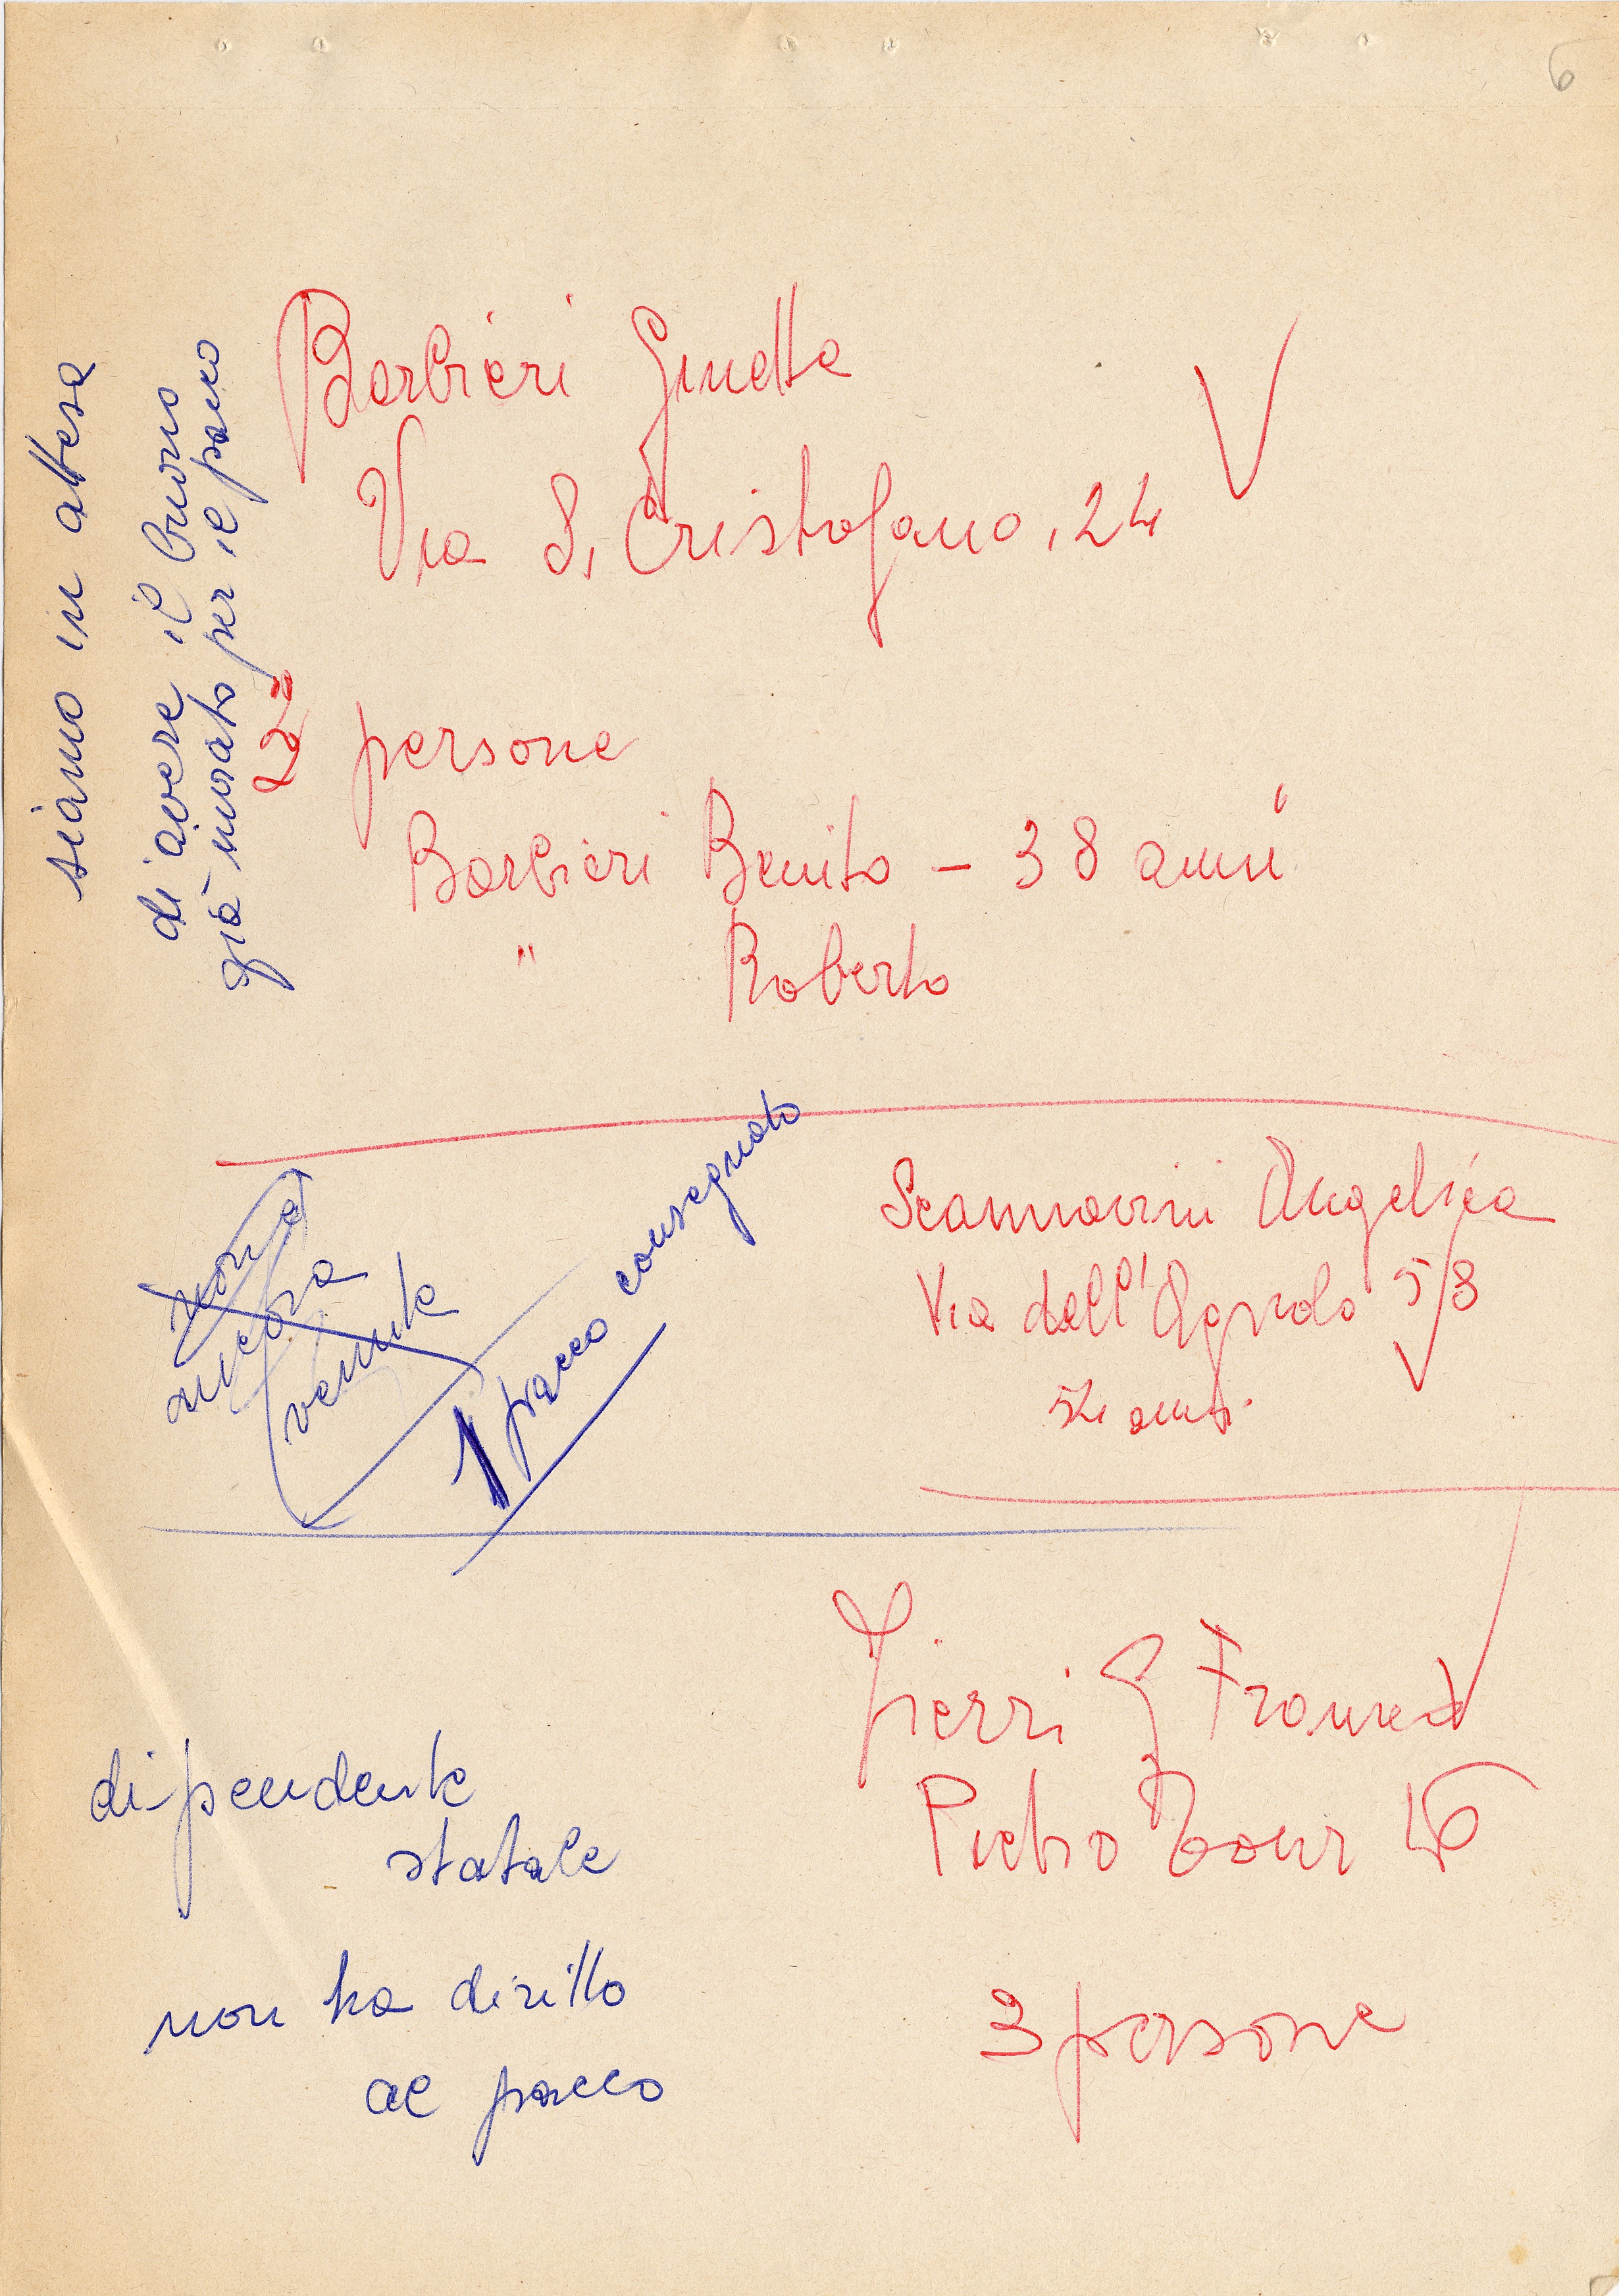 6
Barbieri Ginetta
Via S. Cristofano, 24
V
siamo in attesa
di avere il buono
già inviato per il pacco
2" persone
Barbieri Benito - 38 anni
" Roberto
non è
ancora
venuta
1 pacco consegnato
Scannavini Angelica
Via dell'Agnolo 58
52 anni
Pierri G Franca
Pietro Tour 16
dipendente
statale
non ha diritto
al pacco
3 persone